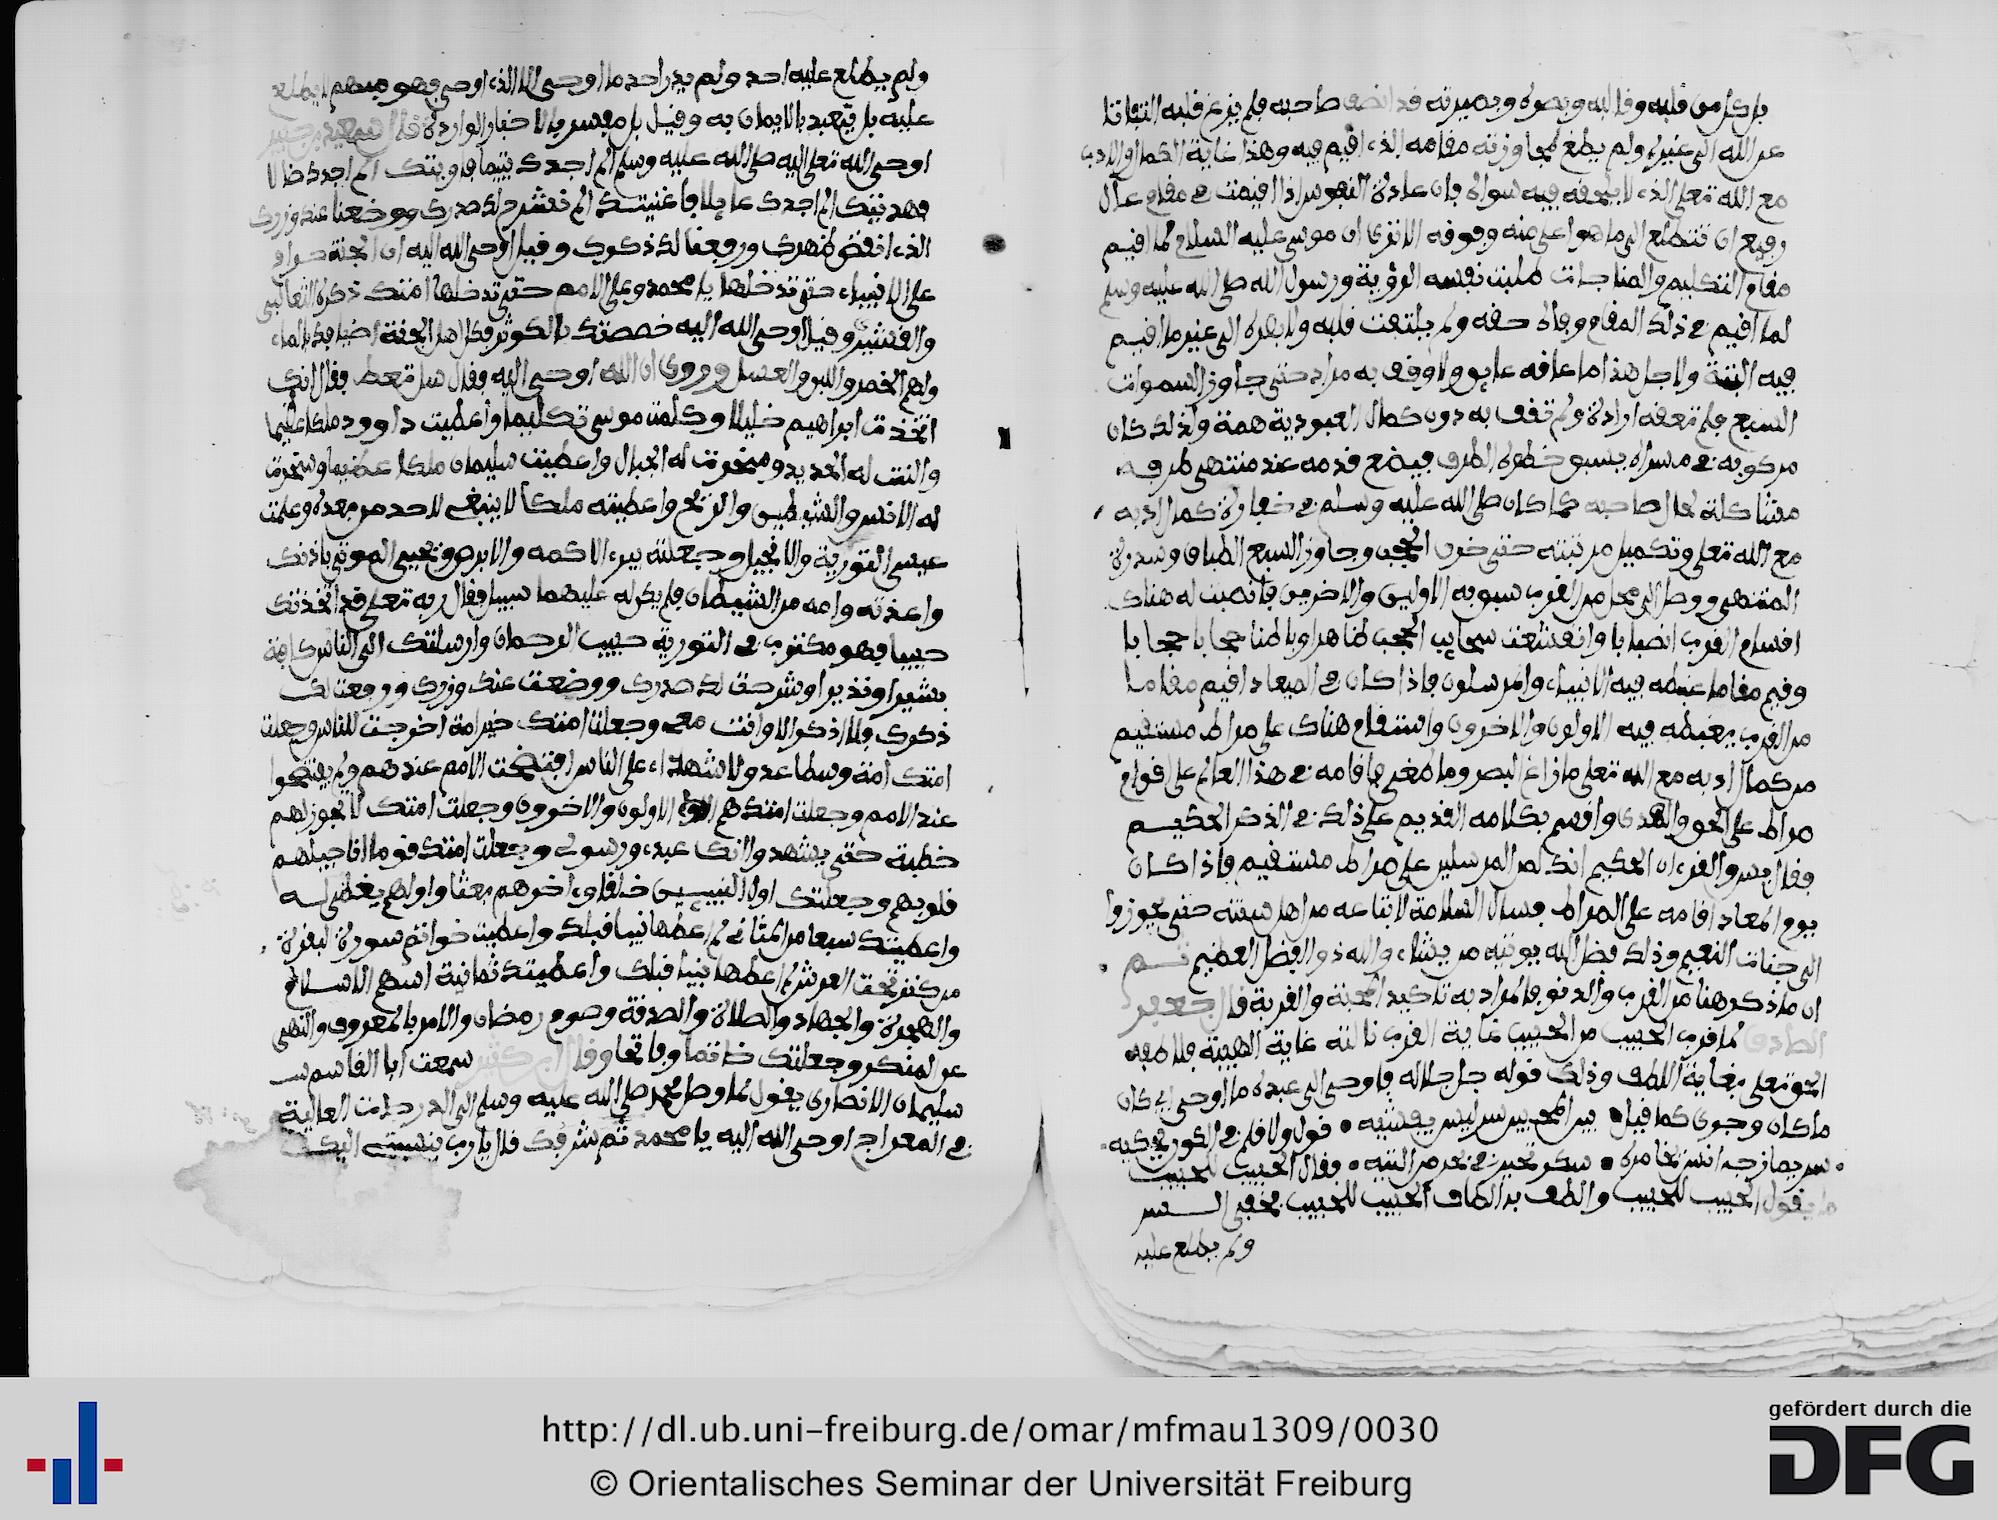 بل كل من قلبه وقالبه وبصره وبصيرته قد انصف صاحبه فلم يزغ قلبه التفاتا
عن الله الى غيره ولم يطغ بمجاوزته مقامه الذي اقيم فيه وهذا غاية الكمال والادب
مع الله تعلى الذي لا يلحقه فيه سواه فان عادة النفوس اذا اقيمت في مقام عال
رفيع ان تتطلع الى ما هو اعلى منه وفوقه الا ترى ان موسى عليه السلام لما اقيم
مقام التكليم والمناجات طلبت نفسه الرؤية ورسول الله صلى الله عليه وسلم
لما اقيم في ذلك المقام وفاه حقه ولم يلتفت قلبه ولا بصره الى غير ما اقيم
فيه البتة ولاجل هذا ما عاقه عايق ولا وقف به مراد حتى جاوز السموات
السبع فلم تعقه ارادة ولم تقف به دون كمال العبودية همة ولذلك كان
مركوبه في مسراه يسبق خطوه الطرف فيضع قدمه عند منتهى طرفه
مشاكلة لحال صاحبه كما كان صلى الله عليه وسلم في خفارة كمال ادبه
مع الله تعلى وتكميل مرتبته حتى خرق الحجب وجاوز السبع الطباق وسدرة
المنتهى ووصل الى محل من القرب سبق به الاولين والاخرين فانصبت له هناك
اقسام القرب انصبابا وانقشعت سحايب الحجب ظاهرا وباطنا حجابا حجابا
وقيم مقاما غبطه فيه الانبياء والمرسلون فاذا كان في الميعاد اقيم مقاما
من القرب يغبطه فيه الاولون والاخرون واستقام هناك على صراط مستقيم
من كمال ادبه مع الله تعلى ما زاغ البصر وما طغى فاقامه في هذا العالم على اقوم
صراط على الحق والهدى واقسم بكلامه القديم على ذلك في الذكر الحكيم
فقال يس والقرءان الحكيم انك لمن المرسلين على صراط مستقيم فاذا كان
يوم المعاد اقامه على الصراط فسال السلامة لاتباعه من اهل سنته حتى يجوزوا
الى جنات النعيم وذلك فضل الله يوتيه من يشاء والله ذو الفضل العظيم ثم
ان ما ذكر هنا من القرب والدنو فالمراد به تاكيد المحبة والقربة قال جعفر
الصادق لما قرب الحبيب من الحبيب غاية القرب نالته غاية الهيبة فلاطفه
الحق تعلى بغاية اللطف وذلك قوله جل جلاله فاوحى الى عبده ما اوحى اي كان
ما كان وجرى كما قيل بين المحبين سر ليس يفشيه قول ولا قلم في الكون يحكيه
سر يمازجه انس يخامره سكر تحير في بحر من التيه فقال الحبيب للحبيب
ما يقول الحبيب للحبيب والطف به الطاف الحبيب للحبيب فخفى السر
ولم يطلع عليه
ولم يطلع عليه احد ولم يدر احد ما اوحى الا الذي اوحى فهو مبهم لا يطلع
عليه بل يتعبد بالايمان به وقيل بل مفسر بالاخبار الواردة قال سعيد بن جبير
اوحى الله تعلى اليه صلى الله عليه وسلم الم اجدك يتيما فاويتك الم اجدك ضالا
فهديتك الم اجدك عايلا فاغنيتك الم نشرح لك صدرك ووضعنا عنك وزرك
الذي انقض ظهرك ورفعنا لك ذكرك وقيل اوحى الله اليه ان الجنة حرام
على الانبياء حتى تدخلها يا محمد وعلى الامم حتى تدخلها امتك ذكره الثعالبي
والقشيري وقيل اوحى الله اليه خصصتك بالكوثر فكل اهل الجنة اضيافك بالماء
ولهم الخمر واللبن والعسل وروي ان الله اوحى اليه فقال سل تعط فقال انك
اتخذت ابراهيم خليلا وكلمت موسى تكليما واعطيت داوود ملكا عظيما
والنت له الحديد وسخرت له الجبال واعطيت سليمان ملكا عظيما وسخرت
له الانس والشيطين والريح واعطيته ملكا لا ينبغي لاحد من بعده وعلمت
عيسى التورية والانجيل وجعلته يبرء الاكمه والابرص ويحيي الموتى باذنك
واعذته وامه من الشيطان فلم يكن له عليهما سبيل فقال ربه تعلى قد اتخذتك
حبيبا فهو مكتوب في التورية حبيب الرحمان وارسلتك الى الناس كافة
بشيرا ونذيرا وشرحت لك صدرك ووضعت عنك وزرك ورفعت لك
ذكرك فلا اذكر الا وانت معي وجعلت امتك خير امة اخرجت للناس وجعلت
امتك امة وسطا عدولا شهداء على الناس افتضحت الامم عندهم ولم يفتضحوا
عند الامم وجعلت امتك هم الاولون والاخرون وجعلت امتك لا تجوز لهم
خطبة حتى يشهدوا انك عبدي ورسولي وجعلت امتك قوما اناجيلهم
قلوبهم وجعلتك اول النبيين خلقا واخرهم بعثا واولهم يقضى له
واعطيتك سبعا من المثاني لم اعطها نبيا قبلك واعطيت خواتم سورة البقرة
من كنز تحت العرش لم اعطها نبيا قبلك واعطيتك ثمانية اسهم الاسلام
والهجرة والجهاد والصلاة والصدقة وصوم رمضان والامر بالمعروف والنهي
عن المنكر وجعلتك خاتما وفاتحا وقال ابن كثير سمعت ابا القاسم
سليمان الانصاري يقول لما وصل محمد صلى الله عليه وسلم الى الدرجات العالية
في المعراج اوحى الله اليه يا محمد بم شرفك قال يا رب بنسبتي اليك
http://dl.ub.uni-freiburg.de/omar/mfmau1309/0030
© Orientalisches Seminar der Universität Freiburg
gefördert durch die
DFG